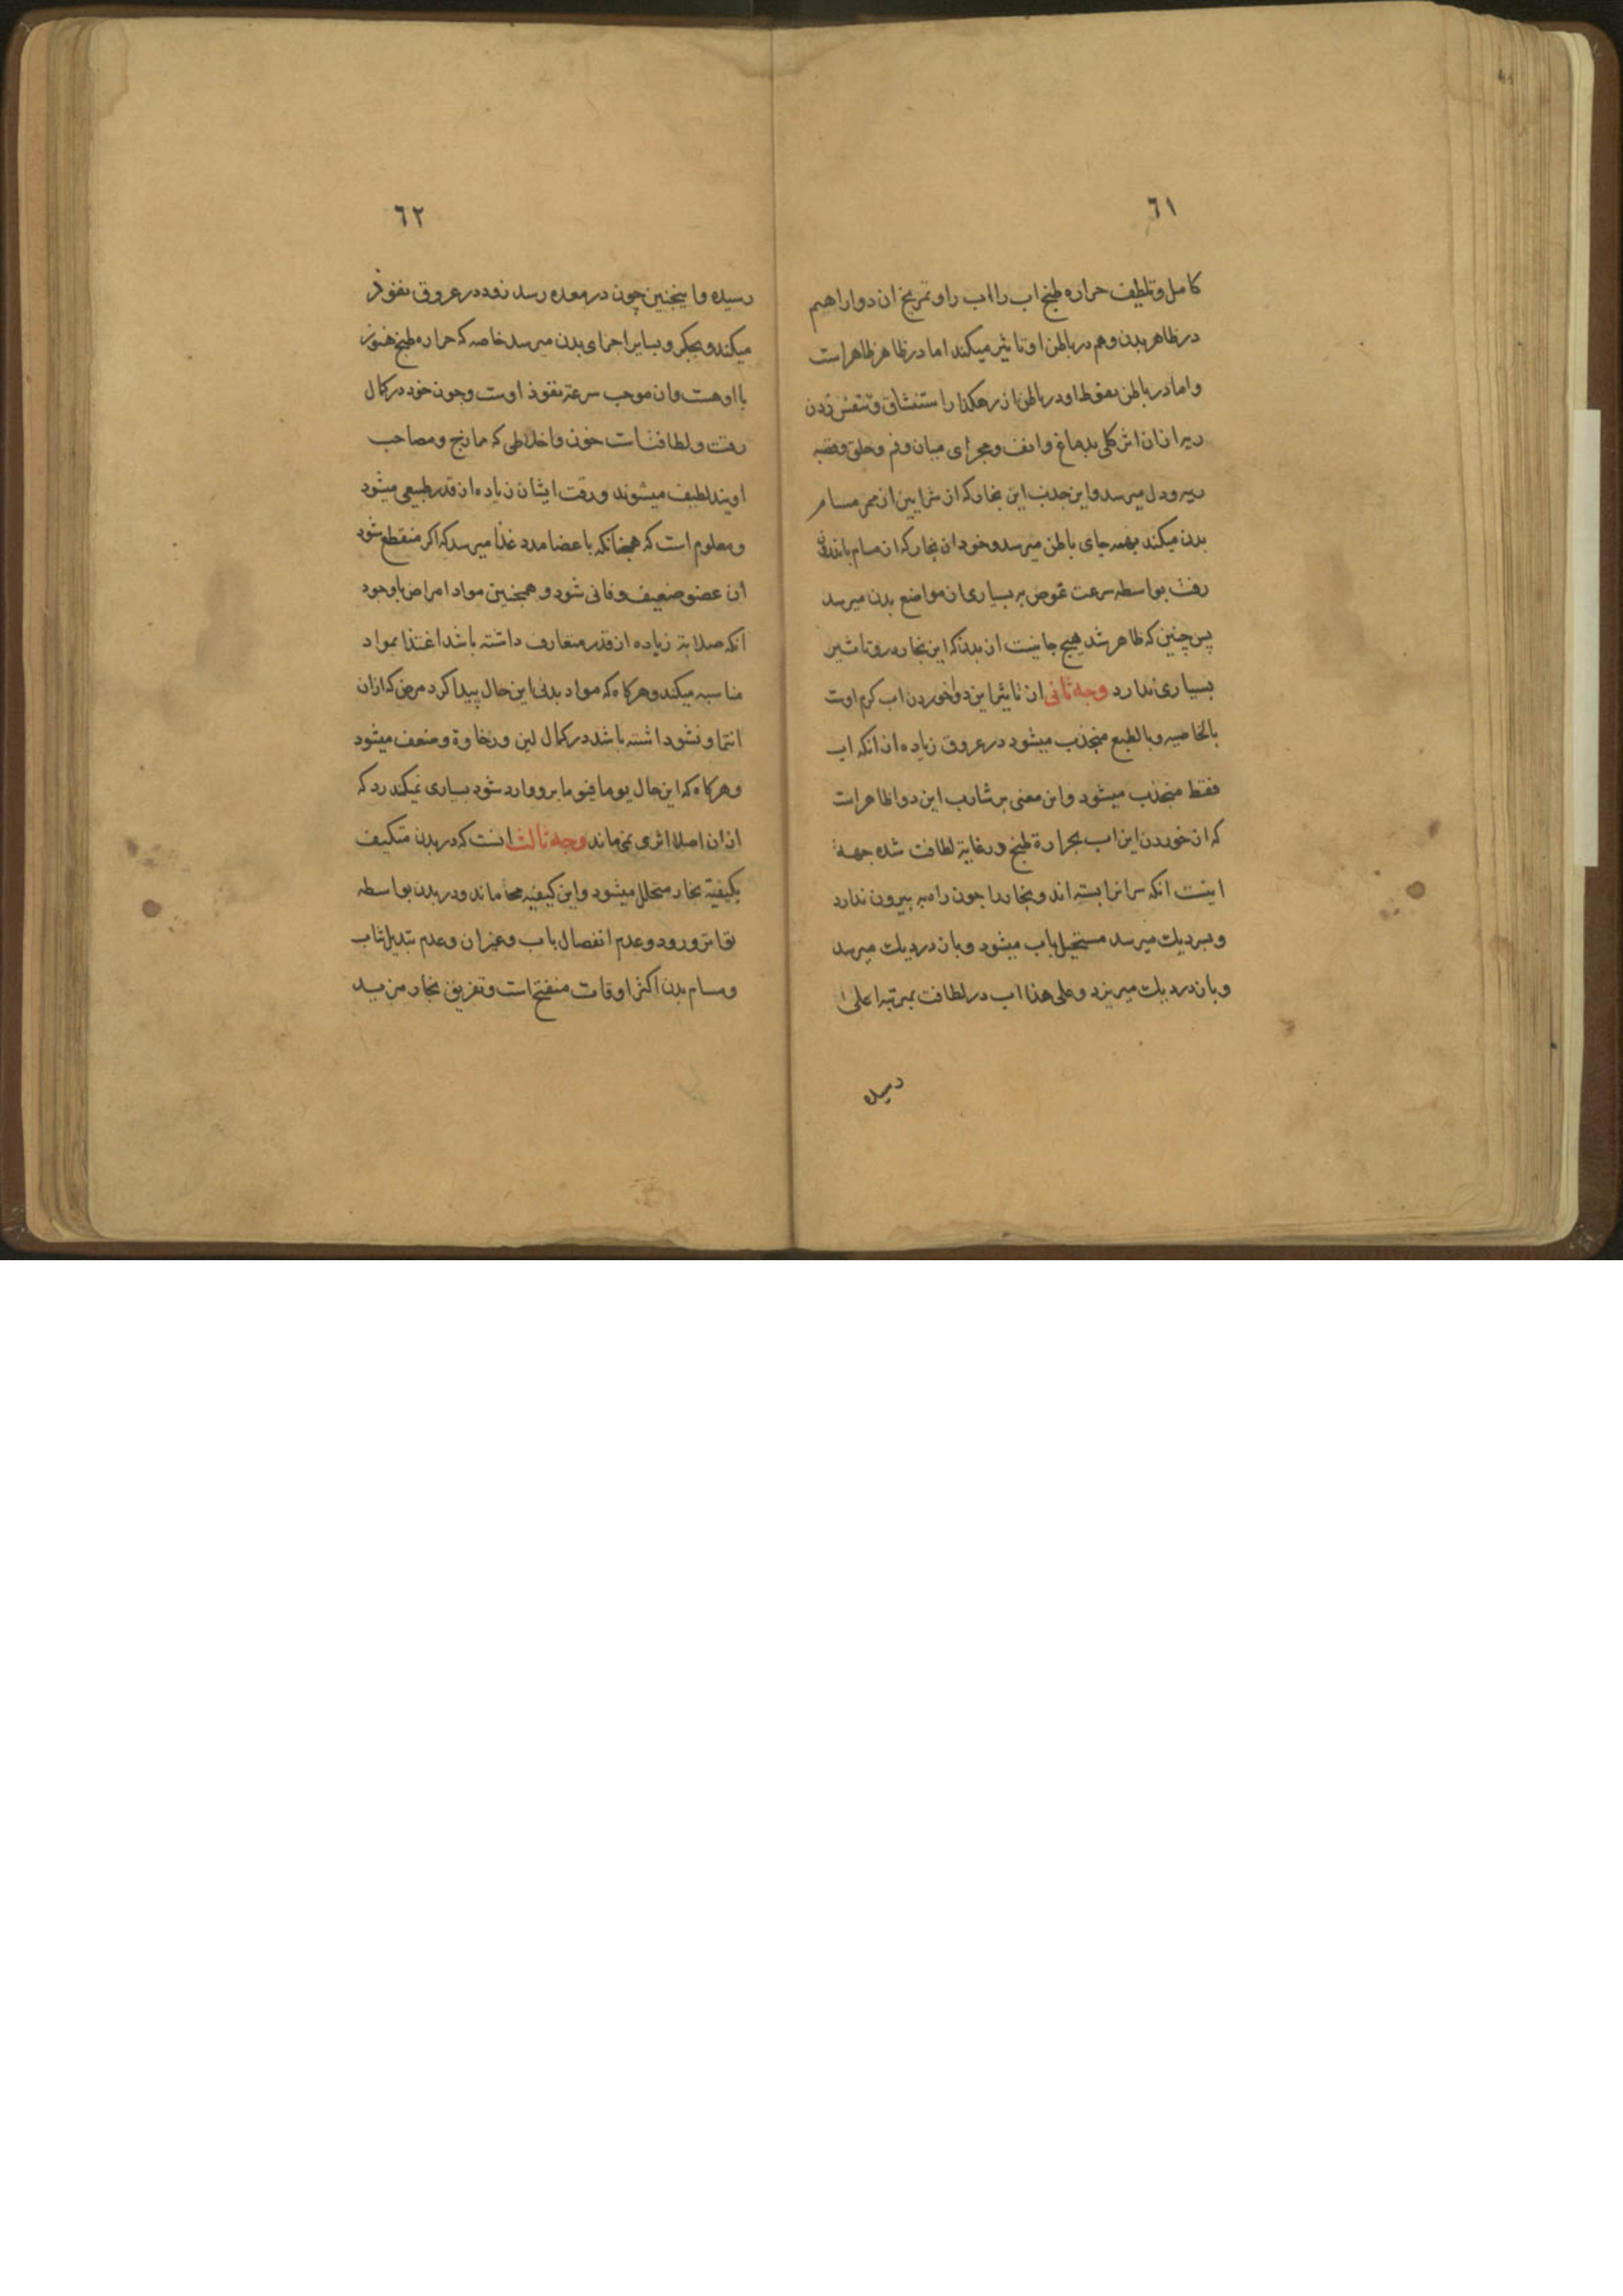 ٦١
كامل وتلطيف حراره طبخ اب را اب را وتمريخ ان دوارا هم
در ظاهر بدن وهم در باطن او تاثير ميكند اما در ظاهر ظاهر است
واما در باطن در باطن از رهكذر استنشاق وتنفس زدن
زيرا از ان اثر كلى بدماغ وانف ومجراى ميان وفم وحلق وقصبه
ريه ودل ميرسد واين جذب اين بخار كه از شرايين از ممر مسام
بدن ميكند بهمه جاى باطن ميرسد وخود ان بخار كه از مسام باندرون
رفت بواسطه سرعت غوص بر بسيارى از مواضع بدن ميرسد
پس چنين كه ظاهر شد هيچ جا نيست از بدن كه اين بخار درو تاثير
بسيارى ندارد وجه ثانى از تاثير اين دوا خوردن اب كرم اوست
بالخاصيه وبالطبع منجذب ميشود در عروق زياده از انكه اب
فقط منجذب ميشود واين معنى بر شارب اين دوا ظاهر است
كه از خوردن اين اب بحرارة طبخ در غاية لطافت شده جهة
اينست انكه سر انرا بسته اند وبخار را چون راه به بيرون ندارد
وبسر ديك ميرسد مستحيل باب ميشود وباز در ديك ميرسد
وباز در ديك ميريزد وعلى هذا اب در لطافت بمرتبه اعلى
رسيده
٦٢
رسيده واينچنين چون در معده رسد زود در عروق نفوذ
ميكند وبجكر وبساير اجزاى بدن ميرسد خاصه كه حراره طبخ هنوز
با او هست وان موجب سرعة نفوذ اوست وچون خود در كمال
رقت ولطافتست خون واخلاطى كه مازج ومصاحب
اويند لطيف ميشوند ورقت ايشان زياده از قدر طبيعى ميشود
ومعلوم است كه همچنانكه باعضا مدد غذا ميرسد كه اكر منقطع شود
ان عضو ضعيف وفانى شود وهمچنين مواد امراض باوجود
انكه صلابة زياده از قدر متعارف داشته باشد اغتذا بمواد
مناسبه ميكند وهركاه كه مواد بدنى اين حال پيدا كرد مرض كه ازان
انتما ونشو داشته باشد در كمال لين ورخاوة وضعف ميشود
وهركاه كه اين حال يوما فيوما برو وارد شود بسيارى نميكذرد كه
ازان اصلا اثرى نمى ماند وجه ثالث انست كه در بدن متكيف
بكيفية بخار متحلل ميشود واين كيفيه ماند ودر بدن بواسطه
تواتر ورود وعدم انفصال باب وغيران وعدم تبديل ثياب
ومسام بدن اكثر اوقات منفتح است وتعريق بخار مزيد